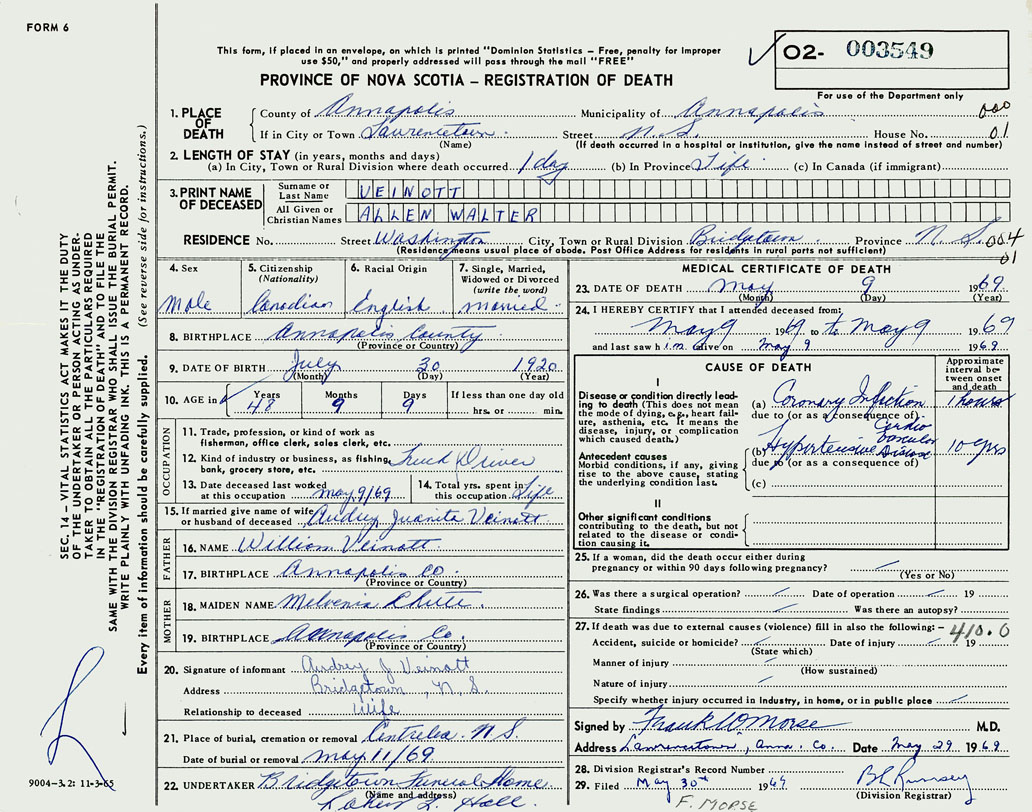 FORM 6
This form, if placed in an envelope, on which is printed "Dominion Statistics – Free, penalty for improper
use $50," and properly addressed will pass through the mail "FREE"
PROVINCE OF NOVA SCOTIA – REGISTRATION OF DEATH
O2- 003549
For use of the Department only
000
1. PLACE OF DEATH
County of Annapolis Municipality of Annapolis
If in City or Town Lawrencetown Street N.S. House No. 01
(Name) (If death occurred in a hospital or institution, give the name instead of street and number)
2. LENGTH OF STAY (in years, months and days)
(a) In City, Town or Rural Division where death occurred 1 day (b) In Province Life (c) In Canada (if immigrant)
3. PRINT NAME OF DECEASED
Surname or Last Name VEINOTT
All Given or Christian Names ALLEN WALTER
RESIDENCE No. Street Washington City, Town or Rural Division Bridgetown Province N.S. 004
01
(Residence means usual place of abode. Post Office Address for residents in rural parts not sufficient)
4. Sex
Male
5. Citizenship (Nationality)
Canadian
6. Racial Origin
English
7. Single, Married, Widowed or Divorced (write the word)
married
8. BIRTHPLACE Annapolis County
(Province or Country)
9. DATE OF BIRTH July 30 1920
(Month) (Day) (Year)
10. AGE in Years 48 Months 9 Days 9 If less than one day old
hrs. or min.
OCCUPATION
11. Trade, profession, or kind of work as
fisherman, office clerk, sales clerk, etc.
12. Kind of industry or business, as fishing,
bank, grocery store, etc. Truck Driver
13. Date deceased last worked
at this occupation May 9/69
14. Total yrs. spent in
this occupation Life
15. If married give name of wife
or husband of deceased Audrey Juanita Veinott
FATHER
16. NAME William Veinott
17. BIRTHPLACE Annapolis Co.
(Province or Country)
MOTHER
18. MAIDEN NAME Melvenia Chute
19. BIRTHPLACE Annapolis Co.
(Province or Country)
20. Signature of informant Audrey J Veinott
Address Bridgetown, N.S.
Relationship to deceased Wife
21. Place of burial, cremation or removal Centrelea N S
Date of burial or removal May 11/69
22. UNDERTAKER Bridgetown Funeral Home
(Name and address)
L. Hall.
MEDICAL CERTIFICATE OF DEATH
23. DATE OF DEATH May 9 1969
(Month) (Day) (Year)
24. I HEREBY CERTIFY that I attended deceased from:
May 9 1969 to May 9 1969
and last saw him alive on May 9 1969
CAUSE OF DEATH
Approximate interval between onset and death
I
Disease or condition directly leading to death (This does not mean the mode of dying, e.g., heart failure, asthenia, etc. It means the disease, injury, or complication which caused death.)
(a) Coronary Infarction 1 hours
due to (or as a consequence of)
Antecedent causes
Morbid conditions, if any, giving rise to the above cause, stating the underlying condition last.
(b) Hypertensive Cardio Vascular Disease 10 yrs
due to (or as a consequence of)
(c)
II
Other significant conditions
contributing to the death, but not related to the disease or condition causing it.
25. If a woman, did the death occur either during
pregnancy or within 90 days following pregnancy?
(Yes or No)
26. Was there a surgical operation? Date of operation 19
State findings Was there an autopsy?
27. If death was due to external causes (violence) fill in also the following: – 410.0
Accident, suicide or homicide? Date of injury 19
(State which)
Manner of injury
(How sustained)
Nature of injury
Specify whether injury occurred in industry, in home, or in public place
Signed by Frank W Morse M.D.
Address Lawrencetown, Anna. Co. Date May 29 1969
28. Division Registrar's Record Number
29. Filed May 30th 1969
(Division Registrar)
F. MORSE
SEC. 14 – VITAL STATISTICS ACT MAKES IT THE DUTY
OF THE UNDERTAKER OR PERSON ACTING AS UNDER-
TAKER TO OBTAIN ALL THE PARTICULARS REQUIRED
IN THE "REGISTRATION OF DEATH" AND FILE THE
SAME WITH THE DIVISION REGISTRAR WHO SHALL ISSUE THE BURIAL PERMIT.
WRITE PLAINLY WITH UNFADING INK. THIS IS A PERMANENT RECORD.
Every item of information should be carefully supplied. (See reverse side for instructions.)
9004-3.2: 11-3-65